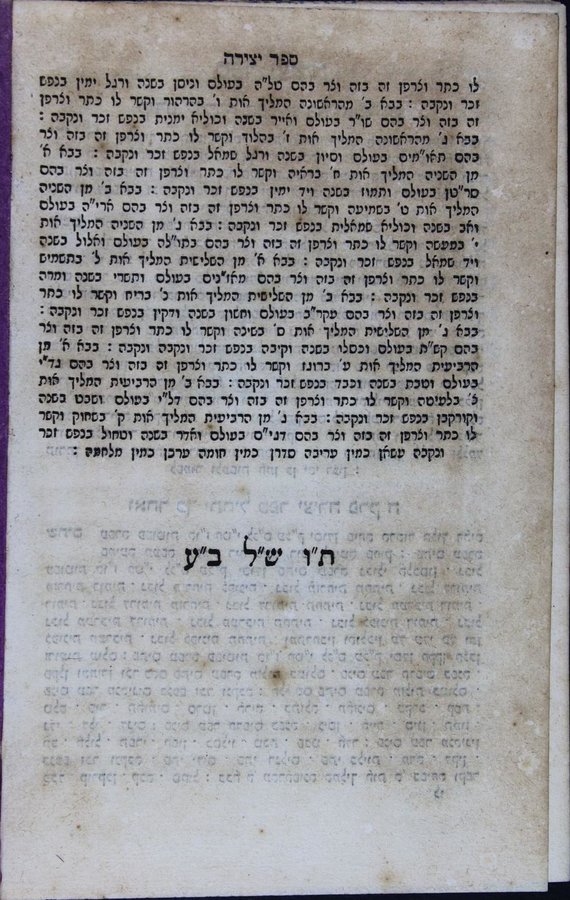 ספר יצירה
לו כתר וצרפן זה בזה וצר בהם טל"ה בעולם וניסן בשנה ורגל ימין בנפש
זכר ונקבה : בבא ב' מהראשונה המליך אות ו' בהרהור וקשר לו כתר וצרפן
זה בזה וצר בהם שו"ר בעולם ואייר בשנה וכוליא ימנית בנפש זכר ונקבה :
בבא ג' מהראשונה המליך אות ז' בהלוך וקשר לו כתר וצרפן זה בזה וצר
בהם תאו"מים בעולם וסיון בשנה ורגל שמאל בנפש זכר ונקבה : בבא א'
מן השניה המליך אות ח' בראיה וקשר לו כתר וצרפן זה בזה וצר בהם
סר"טן בעולם ותמוז בשנה ויד ימין בנפש זכר ונקבה : בבא ב' מן השניה
המליך אות ט' בשמיעה וקשר לו כתר וצרפן זה בזה וצר בהם ארי"ה בעולם
ואב בשנה וכוליא שמאלית בנפש זכר ונקבה : בבא ג' מן השניה המליך אות
י' במעשה וקשר לו כתר וצרפן זה בזה וצר בהם בתו"לה בעולם ואלול בשנה
ויד שמאל בנפש זכר ונקבה : בבא א' מן השלישית המליך אות ל' בתשמיש
וקשר לו כתר וצרפן זה בזה וצר בהם מאז"נים בעולם ותשרי בשנה ומרה
בנפש זכר ונקבה : בבא ב' מן השלישית המליך אות נ' בריח וקשר לו כתר
וצרפן זה בזה וצר בהם עקר"ב בעולם וחשון בשנה ודקין בנפש זכר ונקבה :
בבא ג' מן השלישית המליך אות ס' בשינה וקשר לו כתר וצרפן זה בזה וצר
בהם קש"ת בעולם וכסלו בשנה וקיבה בנפש זכר ונקבה ונקבה : בבא א' מן
הרביעית המליך אות ע' ברוגז וקשר לו כתר וצרפן זה בזה וצר בהם גד"י
בעולם וטבת בשנה וכבד בנפש זכר ונקבה : בבא ב' מן הרביעית המליך אות
צ' בלעיטה וקשר לו כתר וצרפן זה בזה וצר בהם דל"י בעולם ושבט בשנה
וקורקבן בנפש זכר ונקבה : בבא ג' מן הרביעית המליך אות ק' בשחוק וקשר
לו כתר וצרפן זה בזה וצר בהם דגי"ם בעולם ואדר בשנה וטחול בנפש זכר
ונקבה עשאן כמין עריבה סדרן כמין חומה ערכן כמין מלחמה :
ת"ו ש"ל ב"ע